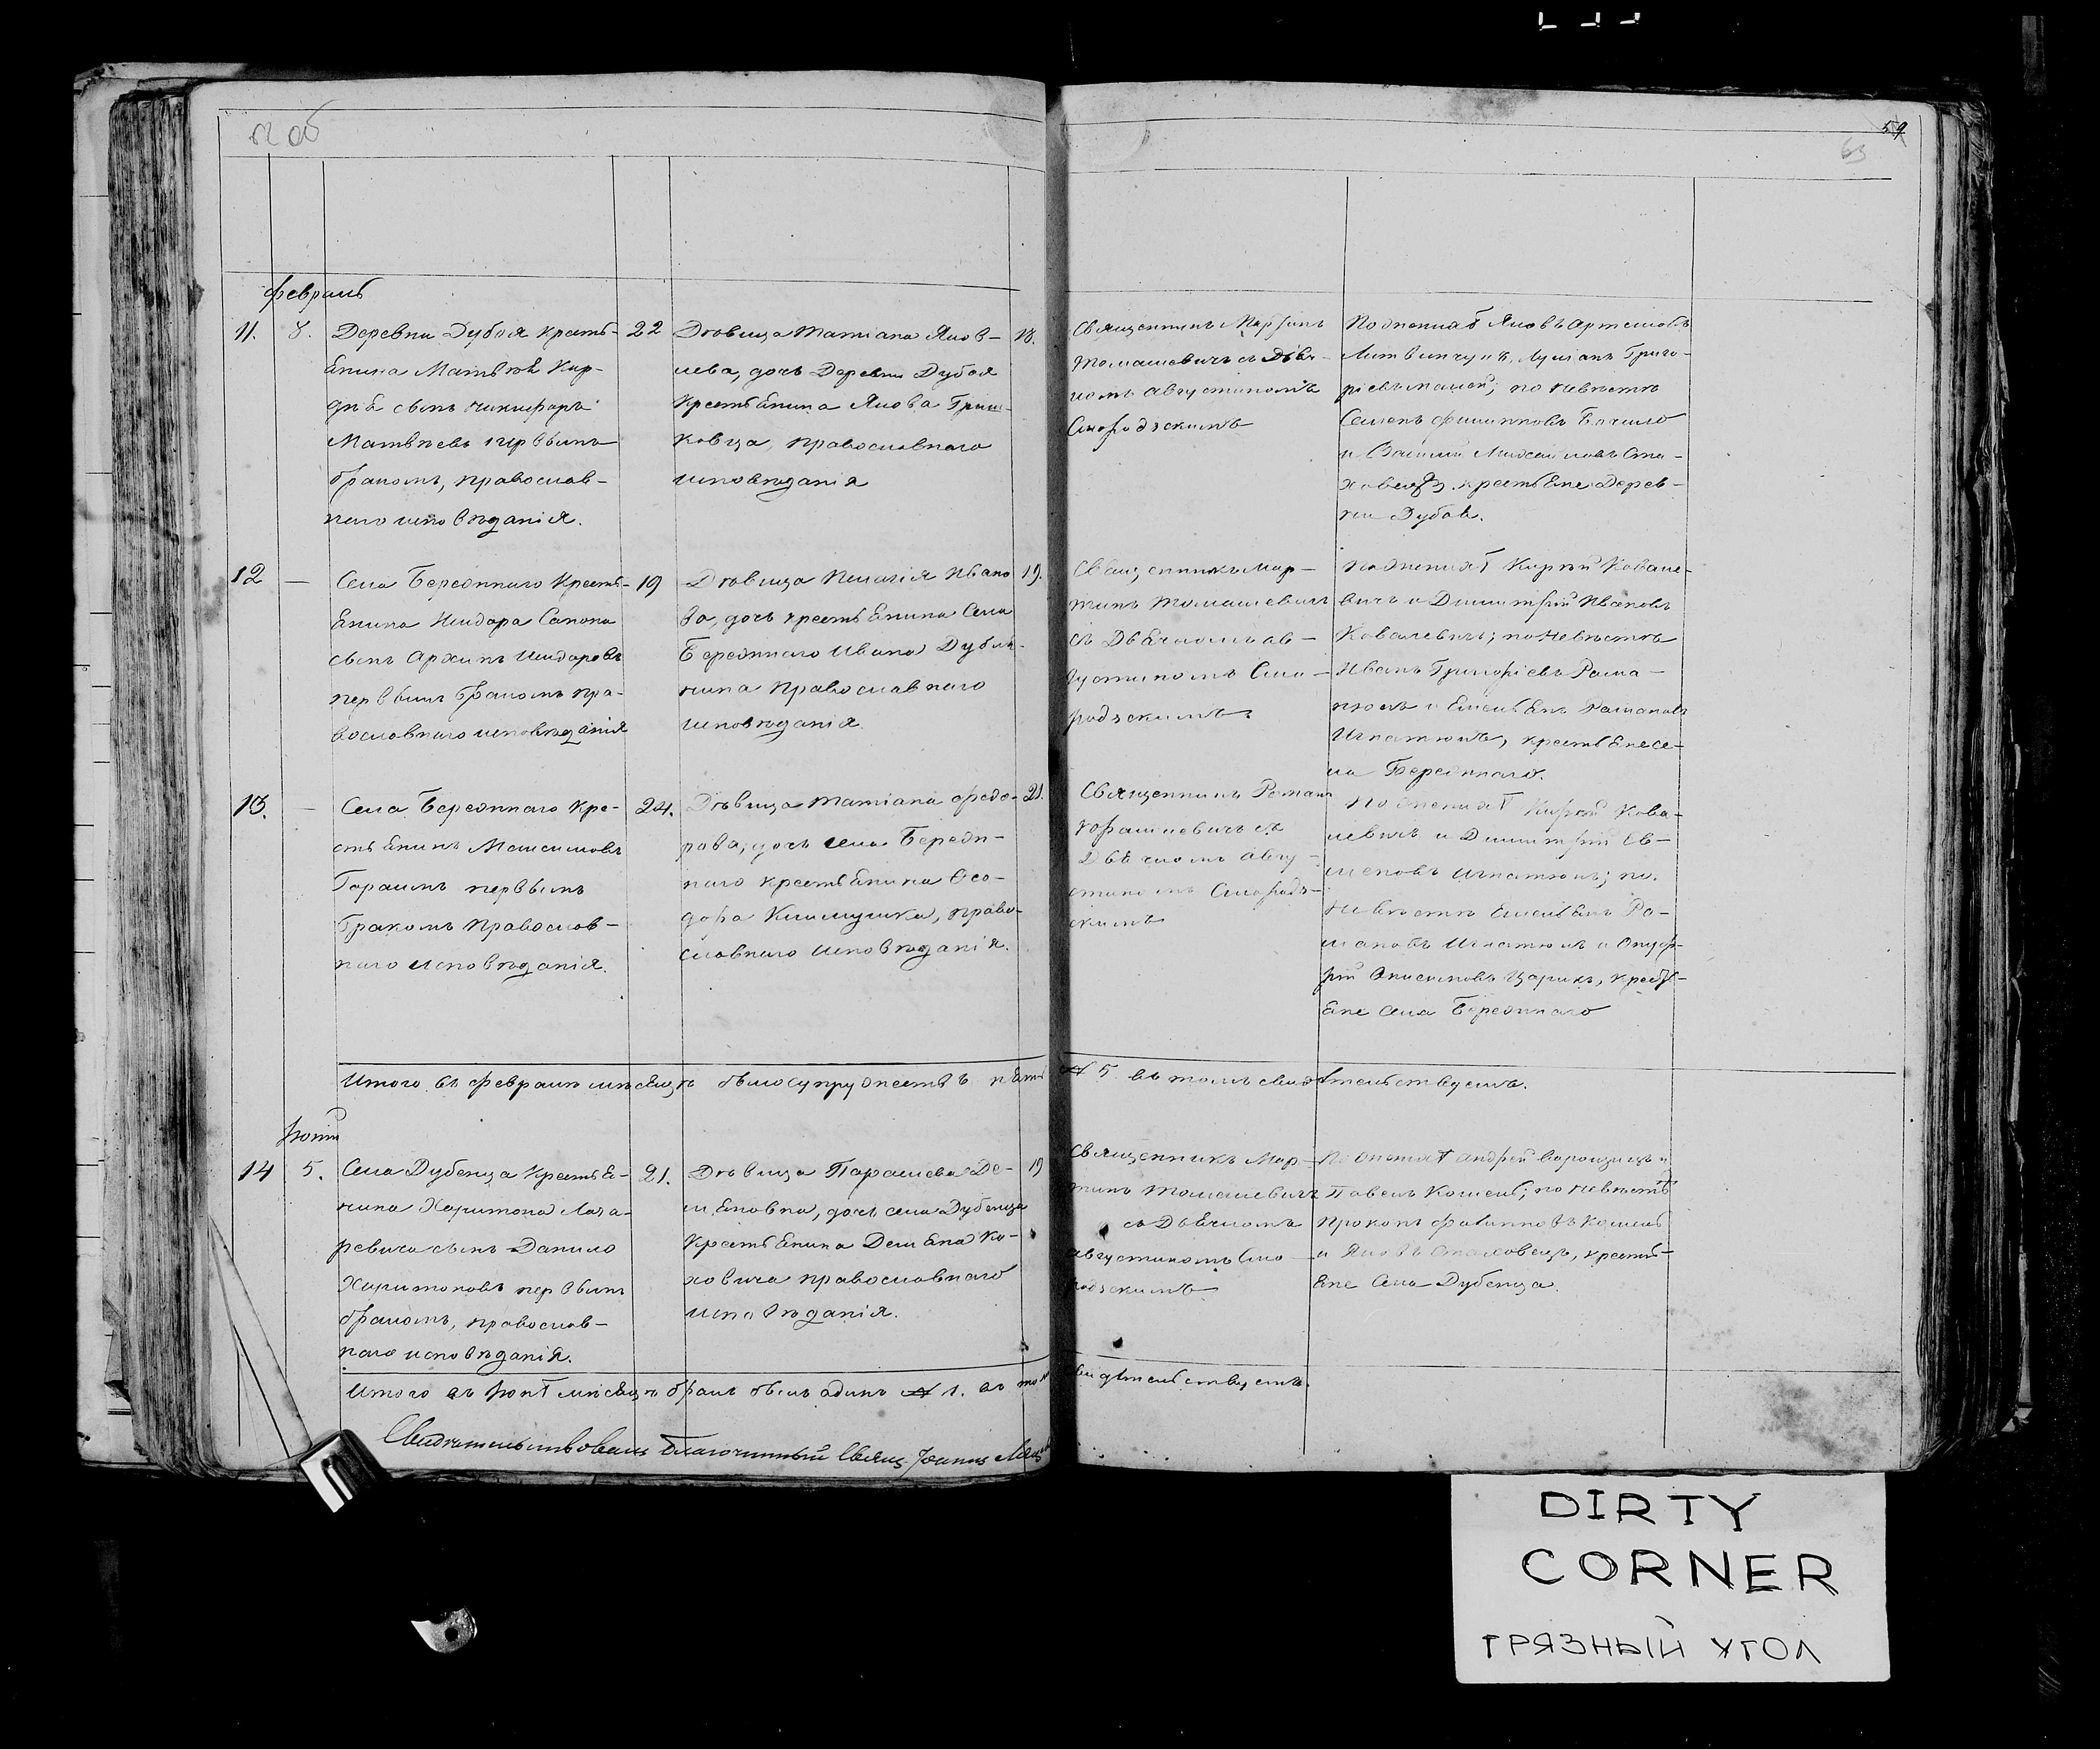 59
63
февраль
11.
8.
Деревни Дубоя крестъ-
янина Матвѣя Кир-
сынъ Никифоръ
Матвѣевъ первымъ
бракомъ, православ-
наго исповѣданія.
22
Дѣвица Татіана Яков-
лева, дочь Деревни Дубоя
Крестьянина Якова Гриш-
ковца, православнаго
исповѣданія
18.
Священникъ Мартинъ
Томашевичъ съ Дьяч-
комъ Августиномъ
Смородскимъ
По женихѣ Яковъ Артемовъ
Литвинчукъ, Лукіанъ Григо-
рьевъ; по невѣстѣ
Семенъ Филипповъ
и Василій Михайловъ Ста-
ховецъ. крестьяне Дерев-
ни Дубоя.
12
—
Села Бережнаго Кресть-
янина Исидора Сапона
сынъ Архипъ Исидоровъ
первымъ бракомъ пра-
вославнаго исповѣданія
19
Дѣвица Пелагія Ивано
ва, дочь крестьянина Села
Бережнаго Ивана
православнаго
исповѣданія.
19.
Священникъ Мар-
тинъ Томашевичъ
съ Дьячкомъ Ав-
густиномъ Смо-
родскимъ
По женихѣ Кирѣй Ковале-
вичъ и Димитрій Ивановъ
Ковалевичъ; по невѣстѣ
Иванъ Григорьевъ Рома-
нюкъ и Емельянъ Романовъ
Игнатюкъ, крестьяне се-
ла Бережнаго.
13.
—
Села Бережнаго Кре-
стьянинъ Максимовъ
первымъ
бракомъ Православ-
наго исповѣданія.
24.
Дѣвица Татіана Федо-
рова, дочь села Береж-
наго крестьянина Ѳео-
дора Климчука, право-
славнаго исповѣданія.
21.
Священникъ Романъ
съ
Дьячкомъ Авгу-
стиномъ Смород-
скимъ
По женихѣ Кирѣй Кова-
левичъ и Димитрій
Игнатюкъ; по
невѣстѣ Емельянъ Ро-
мановъ Игнатюкъ и Онуф-
рій Онисимовъ Царикъ, кресть-
яне села Бережнаго
Итого въ февралѣ мѣсяцѣ было супружествъ пять
№ 5. въ томъ свидѣтельствуемъ.
Іюній
14
5.
Села Дубенца Крестья-
нина Харитона Лаза-
ревича сынъ Данило
Харитоновъ первымъ
бракомъ, православ-
наго исповѣданія.
21.
Дѣвица Параскева Де-
мьяновна, дочь села Дубенца
Крестьянина Демьяна Ко-
ховича православнаго
исповѣданія.
19
Священникъ Мар-
тинъ Томашевичъ
съ Дьячкомъ
Августиномъ Смо-
родскимъ
По женихѣ Андрей и
Павелъ Кошель; по невѣстѣ
Прокопъ Филипповъ Кошель
и Яковъ Стаховецъ, кресть-
яне Села Дубенца.
Итого въ Іюнѣ мѣсяцѣ бракъ былъ одинъ № 1. въ томъ
свидѣтельствуемъ.
Свидѣтельствовалъ Благочинный Священ. Іоаннъ
DIRTY
CORNER
ГРЯЗНЫЙ УГОЛ